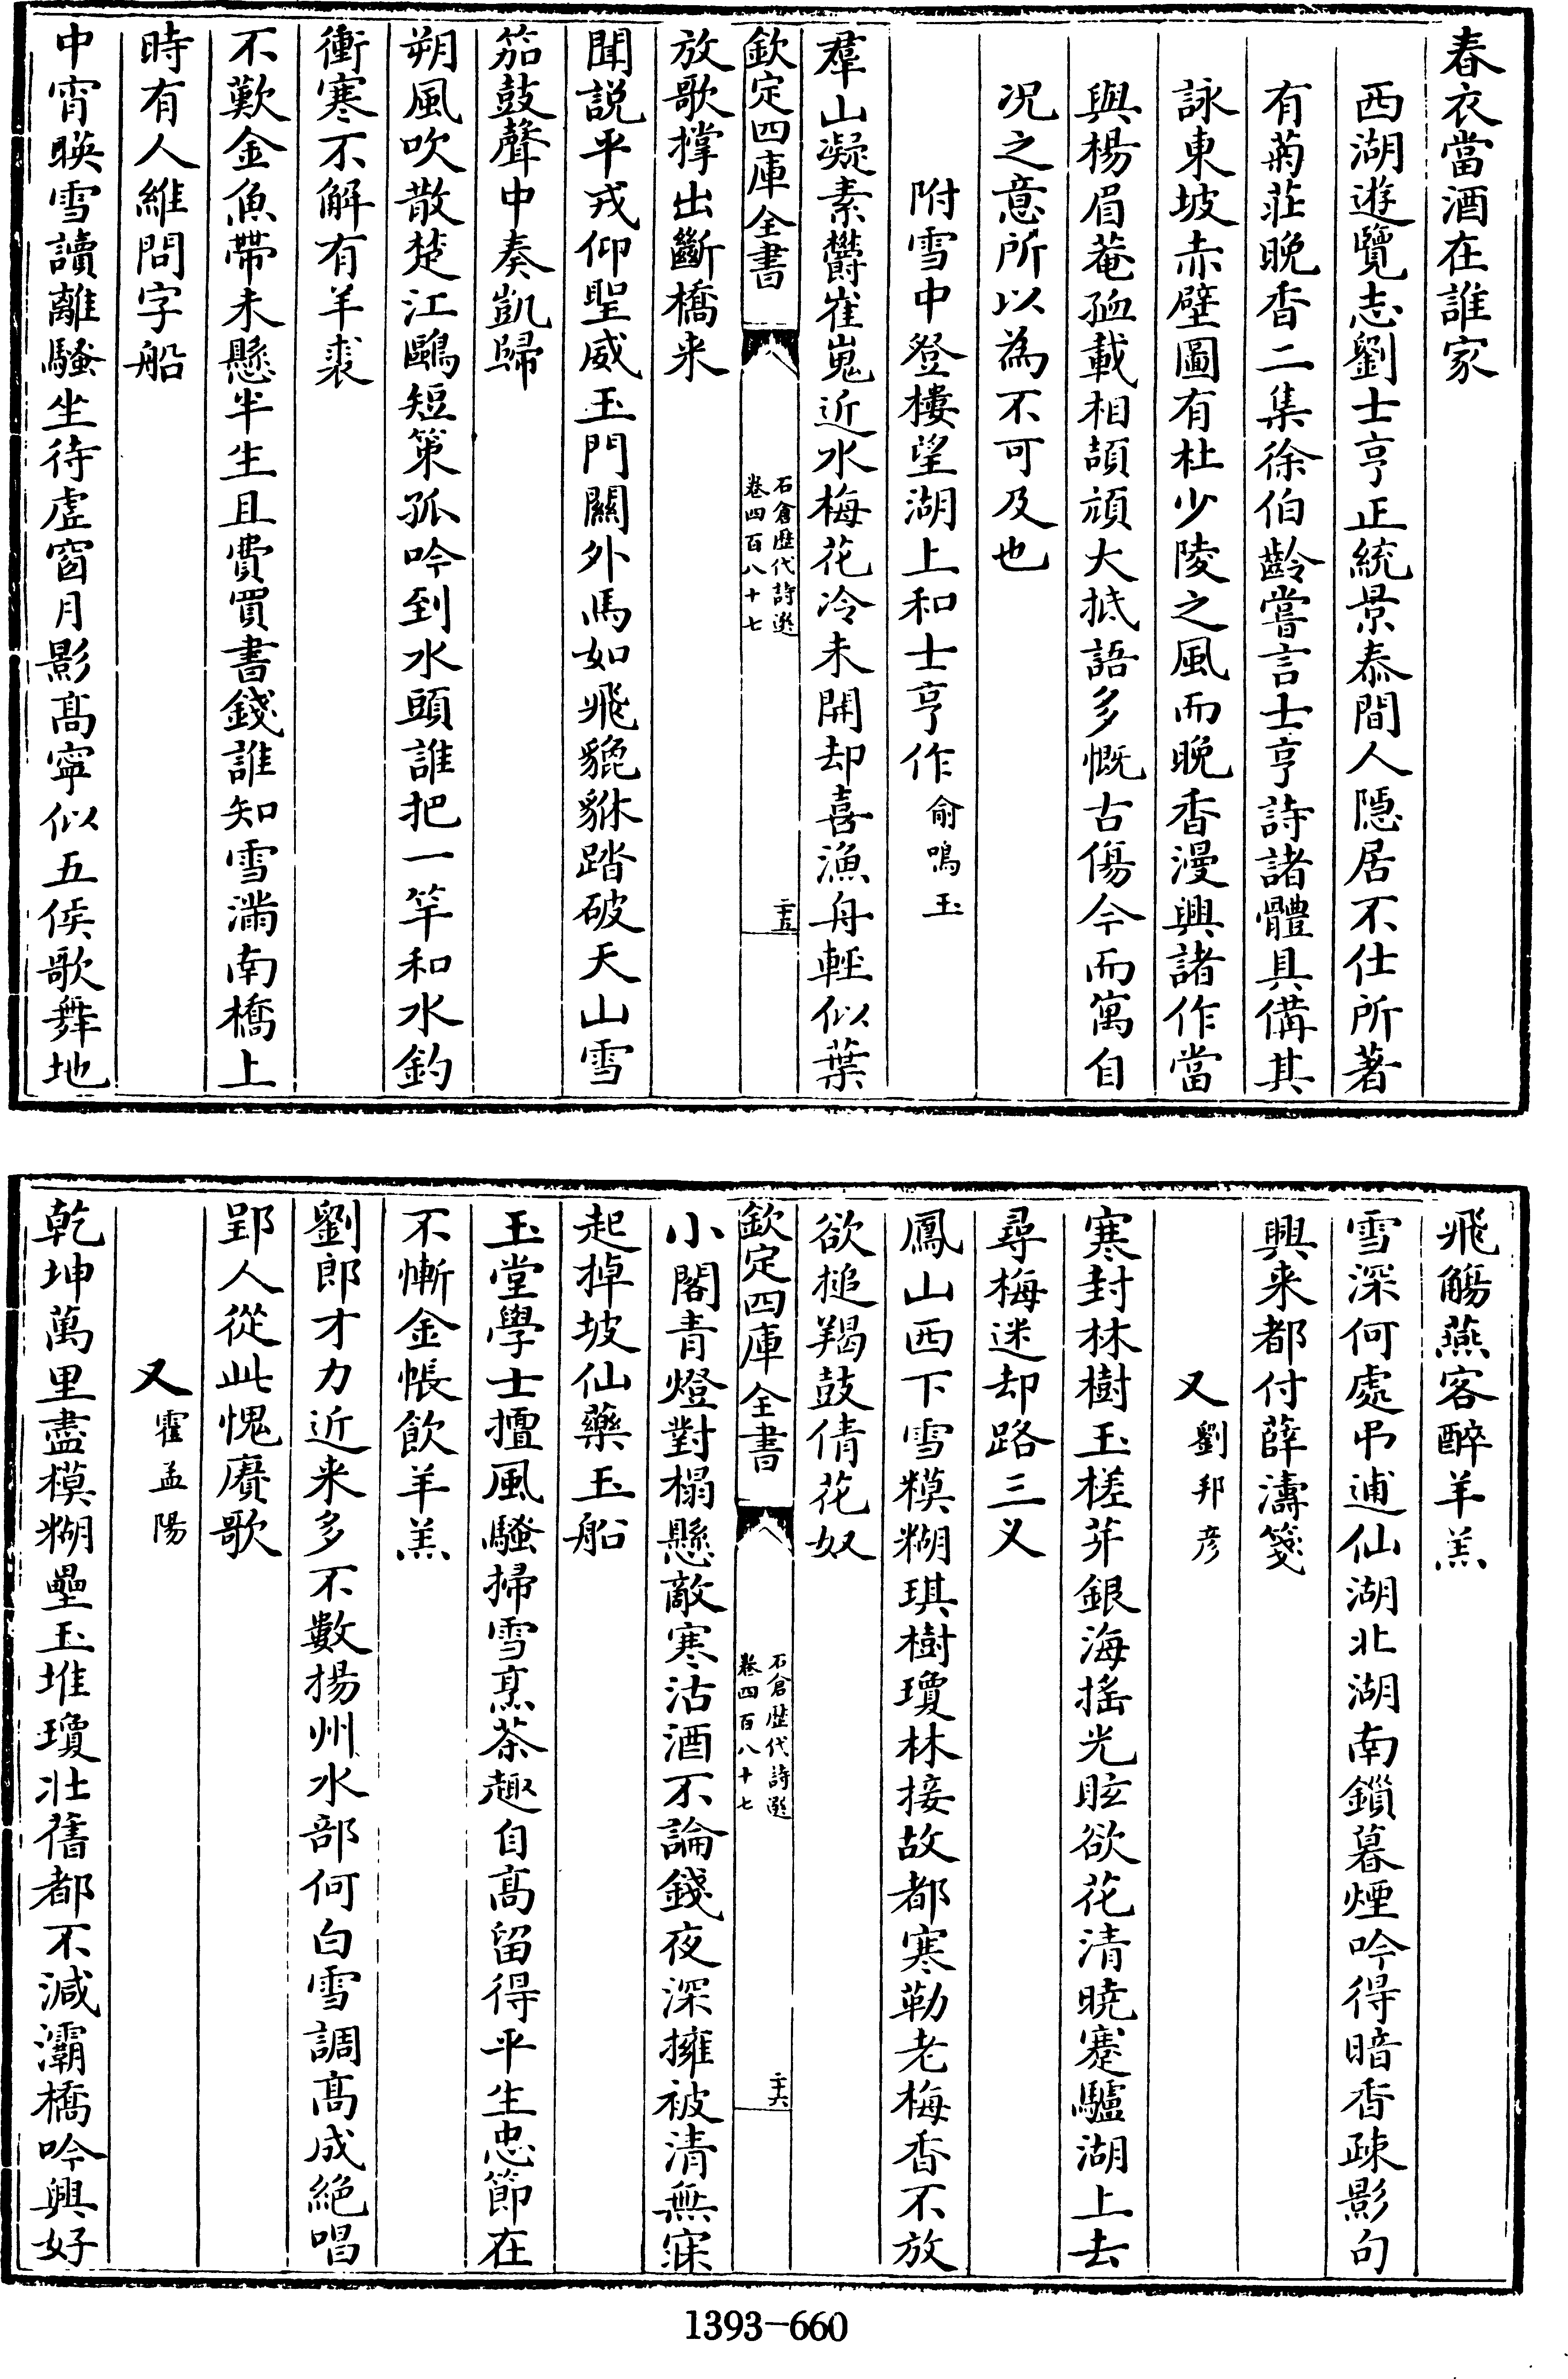 春衣當酒在誰家
西湖遊覽志劉士亨正統景泰間人隱居不仕所著
有菊莊晚香二集徐伯齡嘗言士亨詩諸體具備其
詠東坡赤壁圖有杜少陵之風而晚香漫興諸作當
與楊眉菴孟載相頡頏大抵語多慨古傷今而寓自
况之意所以為不可及也
附雪中登樓望湖上和士亨作俞鳴玉
羣山凝素欝崔嵬近水梅花冷未開却喜漁舟輕似葉
欽定四庫全書
石倉歷代詩選
卷四百八十七
二十五
放歌撑出斷橋来
聞説平戎仰聖威玉門關外馬如飛貔貅踏破天山雪
笳鼓聲中奏凱歸
朔風吹散楚江鷗短策孤吟到水頭誰把一竿和水釣
衝寒不解有羊裘
不歎金魚帶未懸半生且費買書錢誰知雪滿南橋上
時有人維問字船
中宵暎雪讀離騷坐待虚窗月影髙寧似五侯歌舞地
飛觴燕客醉羊羔
雪深何處弔逋仙湖北湖南鎖暮煙吟得暗香疎影句
興来都付薛濤箋
又劉邦彦
寒封林樹玉槎芽銀海揺光眩欲花清曉蹇驢湖上去
尋梅迷却路三叉
鳳山西下雪糢糊琪樹瓊林接故都寒勒老梅香不放
欲槌羯鼓倩花奴
欽定四庫全書
石倉歷代詩選
卷四百八十七
二十六
小閣青燈對榻懸敵寒沽酒不論錢夜深擁被清無寐
起掉坡仙藥玉船
玉堂學士擅風騷掃雪烹茶趣自髙留得平生忠節在
不慚金帳飲羊羔
劉郎才力近来多不數揚州水部何白雪調髙成絶唱
郢人從此愧賡歌
又霍孟陽
乾坤萬里盡模糊壘玉堆瓊壯舊都不減灞橋吟興好
1393-660